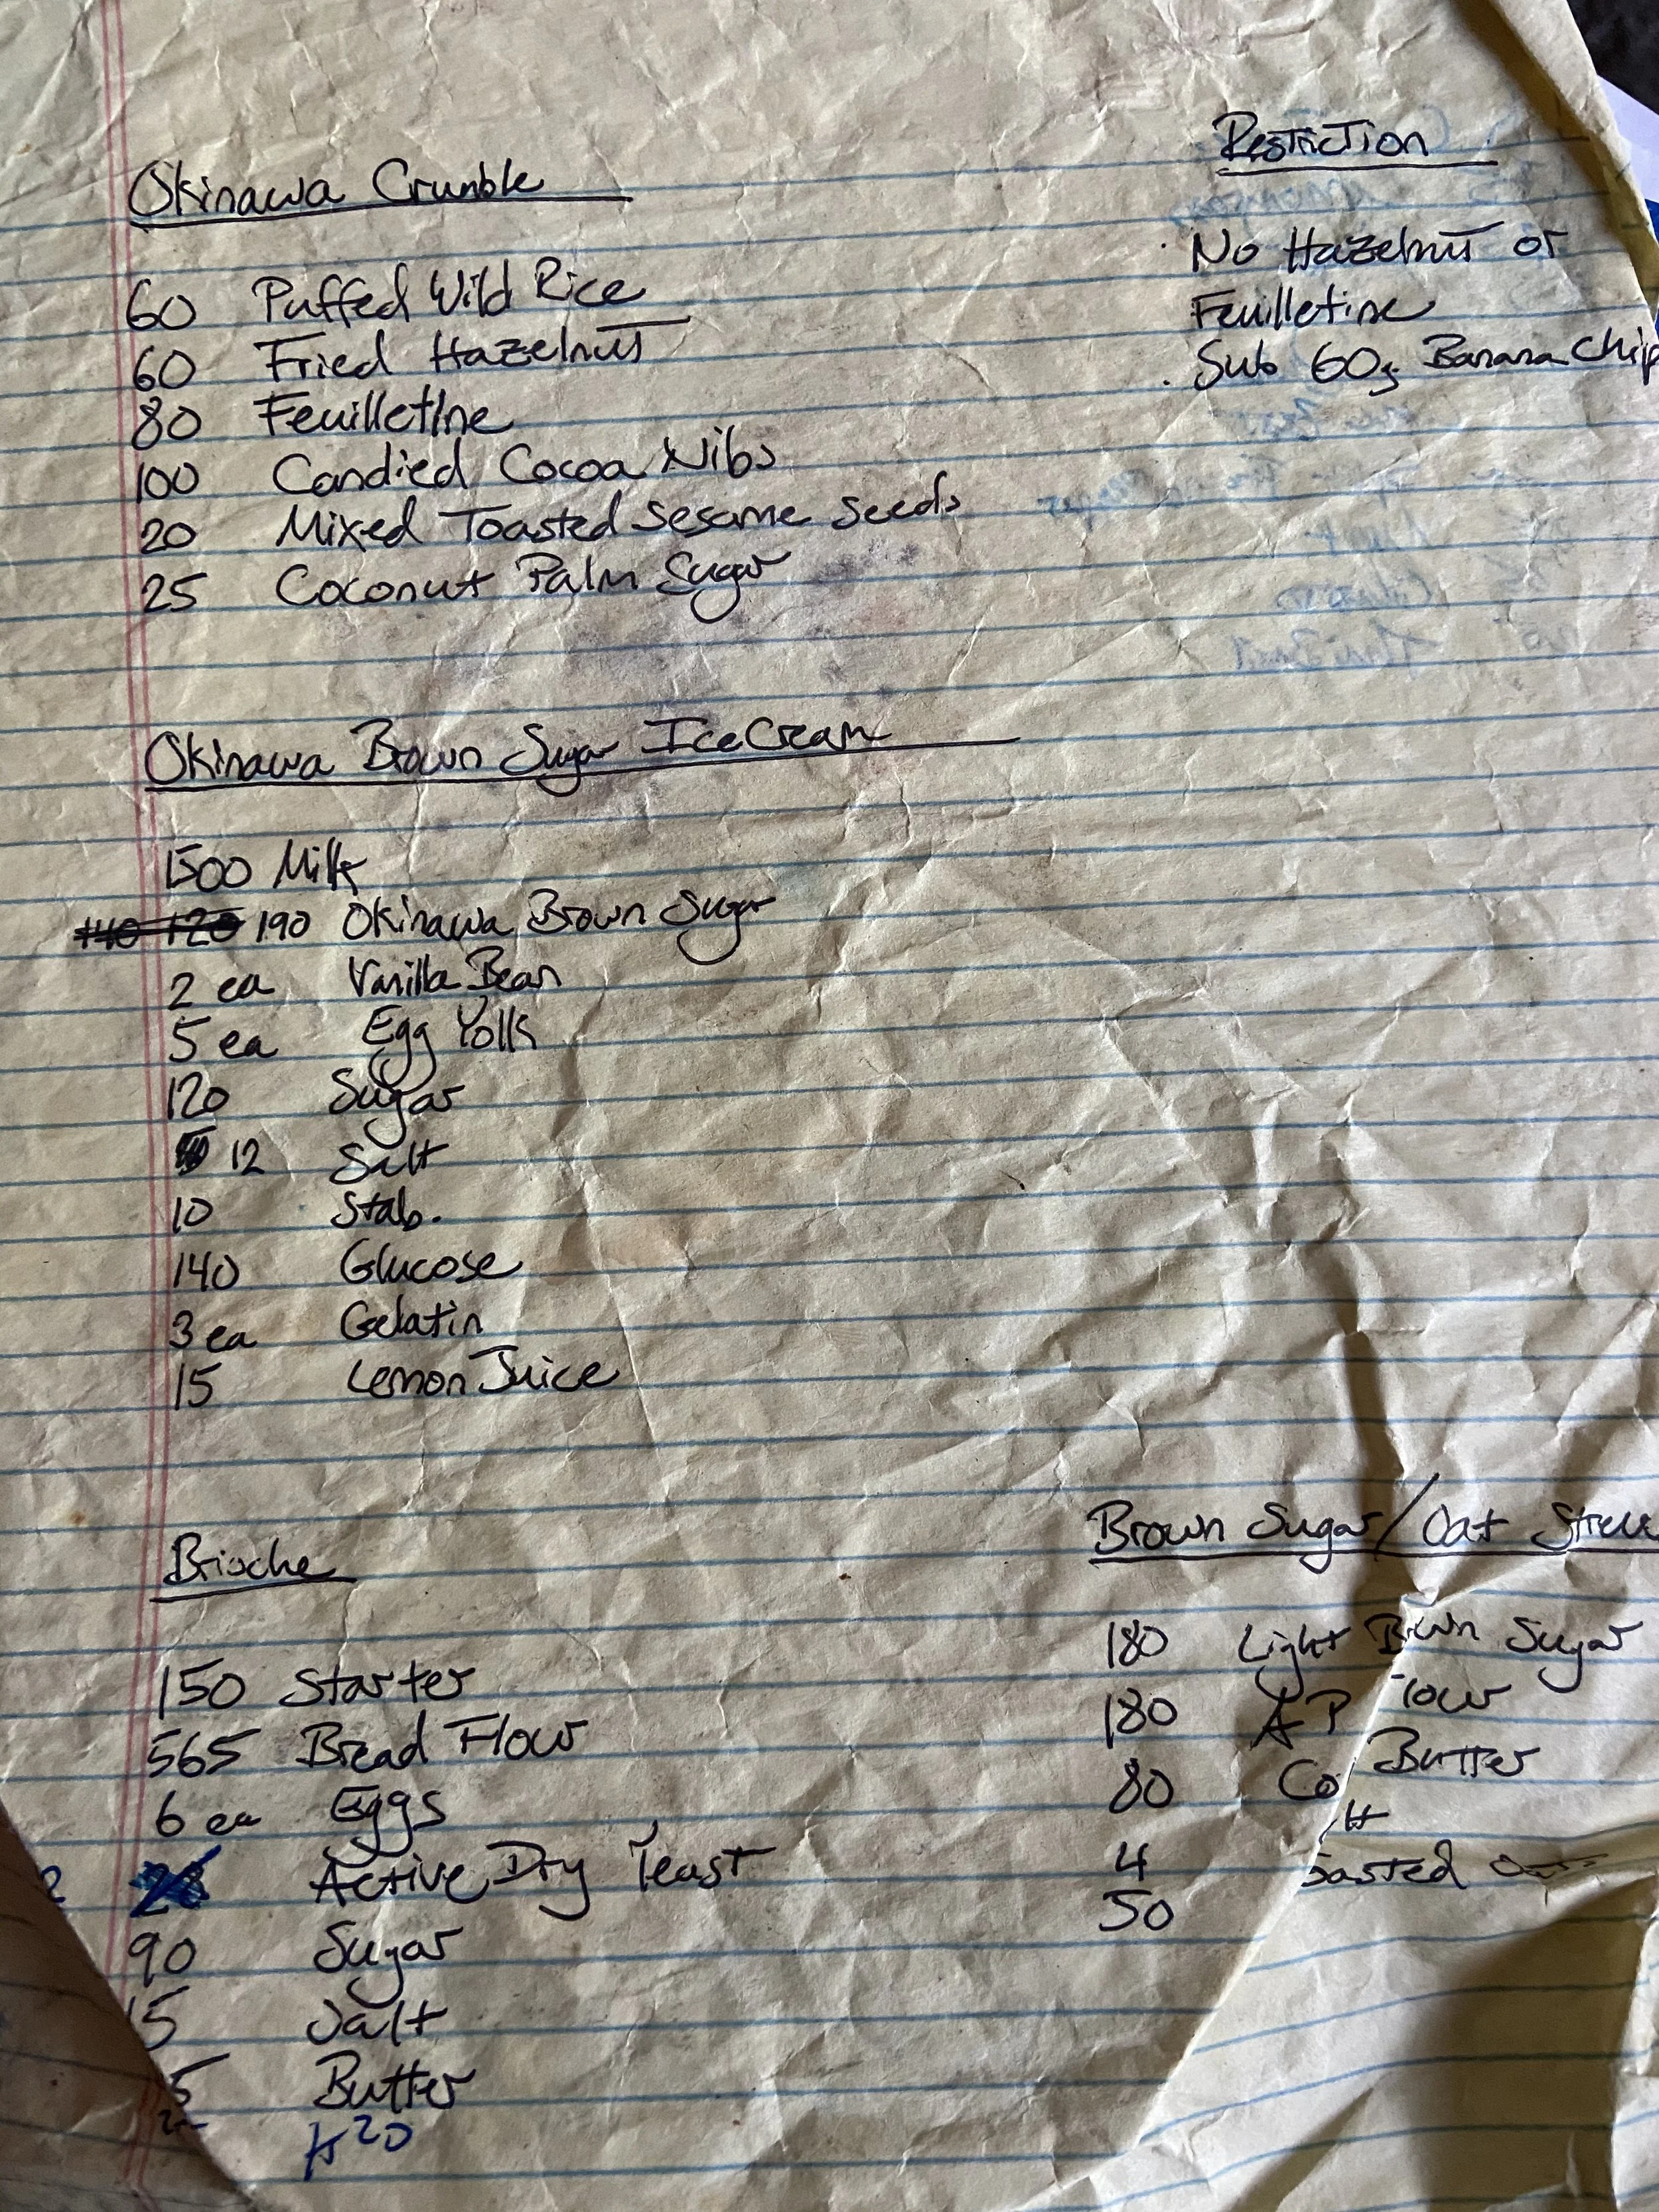 Okinawa Crumble
60 Puffed Wild Rice
60 Fried Hazelnut
80 Feuilletine
100 Candied Cocoa Nibs
20 Mixed Toasted Sesame Seeds
25 Coconut Palm Sugar
Restriction
· No Hazelnut or
Feuilletine
· Sub 60g Banana Chip
Okinawa Brown Sugar Ice Cream
1500 Milk
140 120 190 Okinawa Brown Sugar
2 ea Vanilla Bean
5 ea Egg Yolk
120 Sugar
12 Salt
10 Stab.
140 Glucose
3 ea Gelatin
15 Lemon Juice
Brioche
150 Starter
565 Bread Flour
6 ea Eggs
Active Dry Yeast
90 Sugar
5 Salt
5 Butter
H20
Brown Sugar/Oat Streu
180 Light Brown Sugar
180 AP Flour
80 Co Butter
4 lt
50 oasted